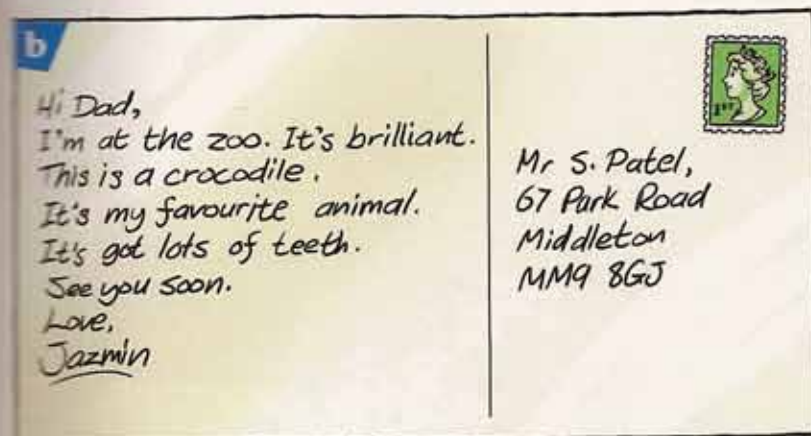 b
Hi Dad,
I'm at the zoo. It's brilliant.
This is a crocodile.
It's my favourite animal.
It's got lots of teeth.
See you soon.
Love,
Jazmin
1ST
Mr S. Patel,
67 Park Road
Middleton
MM9 8GJ